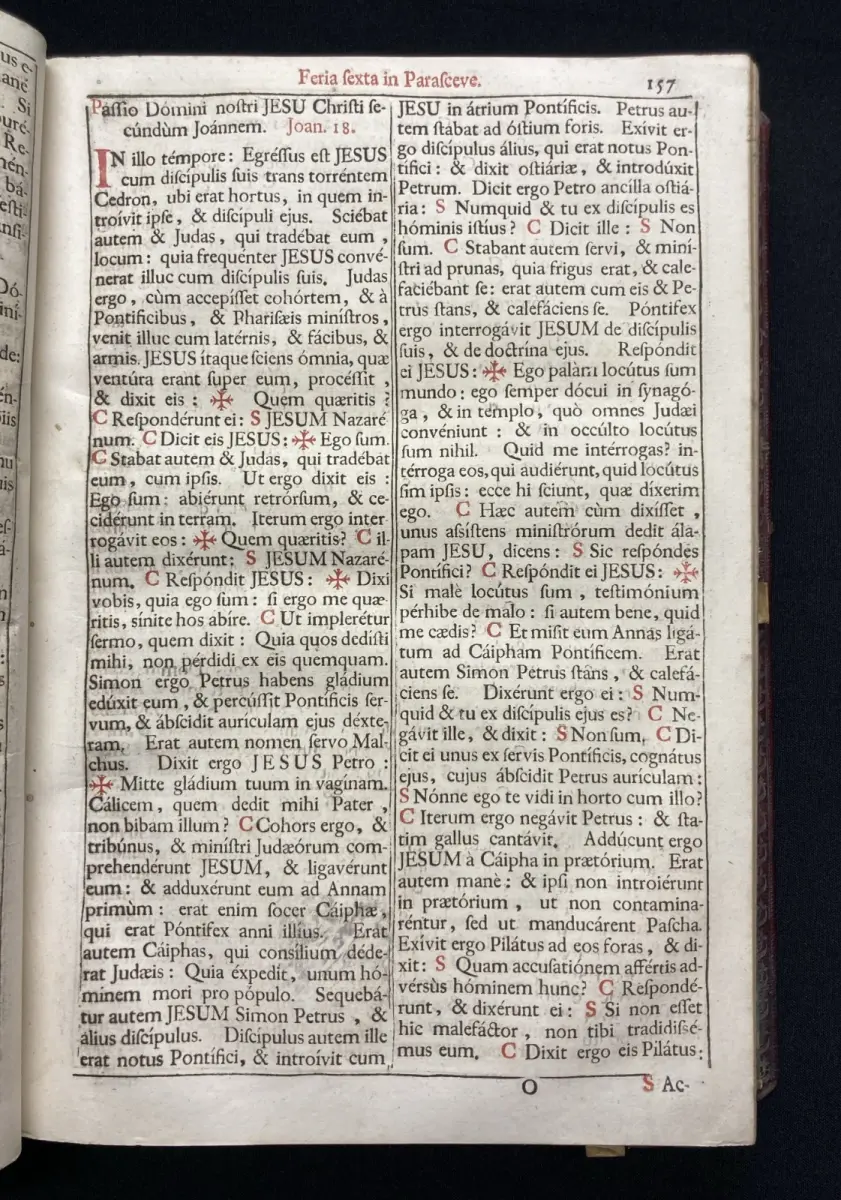 Feria ſexta in Paraſceve.
157
Páſſio Dómini noſtri JESU Chriſti ſe-
cúndùm Joánnem. Joan. 18.
IN illo témpore: Egréſſus eſt JESUS
cum diſcípulis ſuis trans torréntem
Cedron, ubi erat hortus, in quem in-
troívit ipſe, & diſcípuli ejus. Sciébat
autem & Judas, qui tradébat eum,
locum: quia frequénter JESUS convé-
nerat illuc cum diſcípulis ſuis. Judas
ergo, cùm accepíſſet cohórtem, & à
Pontificibus, & Phariſæis miniſtros,
venit illuc cum latérnis, & fácibus, &
armis. JESUS ítaque ſciens ómnia, quæ
ventúra erant ſuper eum, proceſſit,
& dixit eis: ✠ Quem quæritis?
C Reſpondérunt ei: S JESUM Nazaré
num. C Dicit eis JESUS: ✠ Ego ſum.
C Stabat autem & Judas, qui tradébat
eum, cum ipſis. Ut ergo dixit eis:
Ego ſum: abiérunt retrórſum, & ce-
cidérunt in terram. Iterum ergo inter
rogávit eos: ✠ Quem quæritis? C il-
li autem dixérunt: S JESUM Nazaré-
num. C Reſpóndit JESUS: ✠ Dixi
vobis, quia ego ſum: ſi ergo me quæ-
ritis, sínite hos abíre. C Ut implerétur
ſermo, quem dixit: Quia quos dediſti
mihi, non pérdidi ex eis quemquam.
Simon ergo Petrus habens gládium
edúxit eum, & percúſſit Pontíficis ſer-
vum, & ábſcidit aurículam ejus déxte-
ram. Erat autem nomen ſervo Mal-
chus. Dixit ergo JESUS Petro:
✠ Mitte gládium tuum in vagínam.
Cálicem, quem dedit mihi Pater,
non bibam illum? C Cohors ergo, &
tribúnus, & miniſtri Judæórum com-
prehendérunt JESUM, & ligavérunt
eum: & adduxérunt eum ad Annam
primùm: erat enim ſocer Cáiphæ,
qui erat Póntifex anni illíus. Erat
autem Cáiphas, qui conſílium déde-
rat Judæis: Quia éxpedit, unum hó-
minem mori pro pópulo. Sequebá-
tur autem JESUM Simon Petrus, &
álius diſcípulus. Diſcípulus autem ille
erat notus Pontífici, & introívit cum
JESU in átrium Pontíficis. Petrus au-
tem ſtabat ad óſtium foris. Exívit er-
go diſcípulus álius, qui erat notus Pon-
tífici: & dixit oſtiáriæ, & introdúxit
Petrum. Dicit ergo Petro ancílla oſtiá-
ria: S Numquid & tu ex diſcípulis es
hóminis iſtíus? C Dicit ille: S Non
ſum. C Stabant autem ſervi, & mini-
ſtri ad prunas, quia frigus erat, & cale-
faciébant ſe: erat autem cum eis & Pe-
trus ſtans, & calefáciens ſe. Póntifex
ergo interrogávit JESUM de diſcípulis
ſuis, & de doctrína ejus. Reſpóndit
ei JESUS: ✠ Ego palàm locútus ſum
mundo: ego ſemper dócui in ſynagó-
ga, & in templo, quò omnes Judæi
convéniunt: & in occúlto locútus
ſum nihil. Quid me intérrogas? in-
térroga eos, qui audiérunt, quid locútus
ſim ipſis: ecce hi ſciunt, quæ díxerim
ego. C Hæc autem cùm dixíſſet,
unus aſsíſtens miniſtrórum dedit ála-
pam JESU, dicens: S Sic reſpóndes
Pontífici? C Reſpóndit ei JESUS: ✠
Si malè locútus ſum, teſtimónium
pérhibe de malo: ſi autem bene, quid
me cædis? C Et miſit eum Annas ligá-
tum ad Cáipham Pontíficem. Erat
autem Simon Petrus ſtans, & calefá-
ciens ſe. Dixérunt ergo ei: S Num-
quid & tu ex diſcípulis ejus es? C Ne-
gávit ille, & dixit: S Non ſum. C Di-
cit ei unus ex ſervis Pontíficis, cognátus
ejus, cujus ábſcidit Petrus aurículam:
S Nónne ego te vidi in horto cum illo?
C Iterum ergo negávit Petrus: & ſta-
tim gallus cantávit. Addúcunt ergo
JESUM à Cáipha in prætórium. Erat
autem manè: & ipſi non introiérunt
in prætórium, ut non contamina-
réntur, ſed ut manducárent Paſcha.
Exívit ergo Pilátus ad eos foras, & di-
xit: S Quam accuſatiónem affértis ad-
vérsùs hóminem hunc? C Reſpondé-
runt, & dixérunt ei: S Si non eſſet
hic malefáctor, non tibi tradidiſsé-
mus eum. C Dixit ergo eis Pilátus:
O
S Ac-